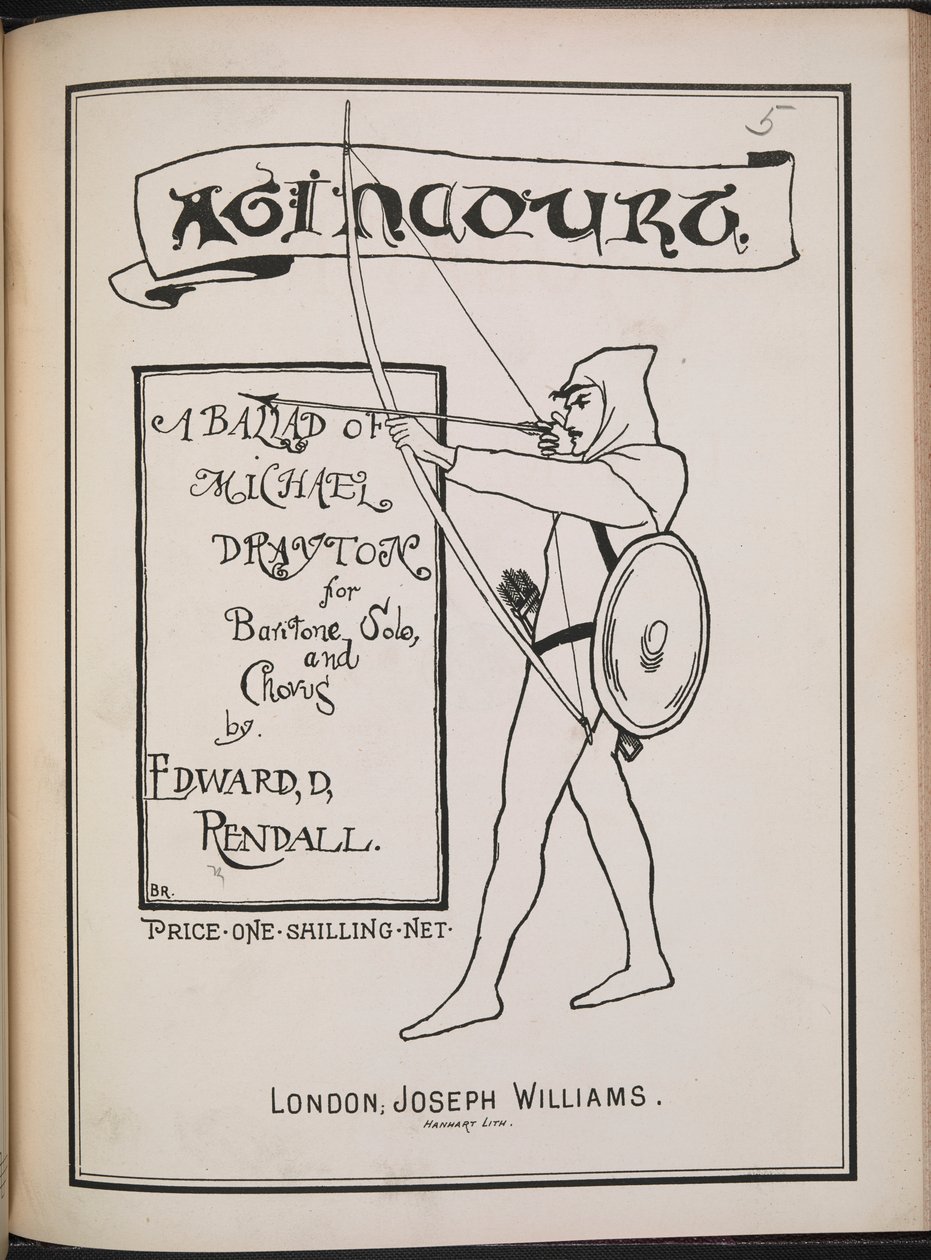 5
AGINCOURT.
A BALLAD OF
MICHAEL
DRAYTON
for
Baritone Solo,
and
Chorus
by.
EDWARD, D,
RENDALL.
BR.
PRICE·ONE·SHILLING·NET·
LONDON; JOSEPH WILLIAMS.
HANHART LITH.